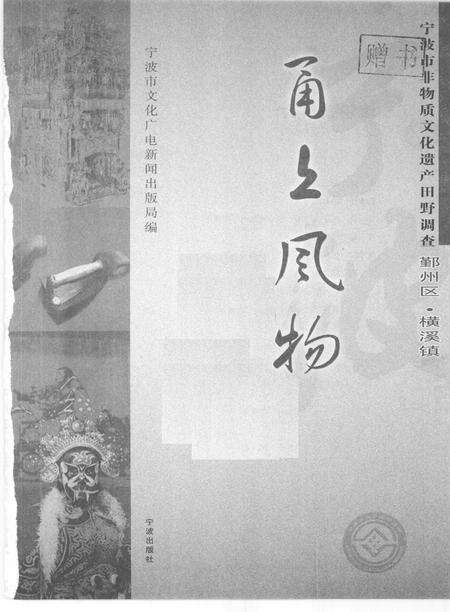 赠书
宁波市非物质文化遗产田野调查 鄞州区·横溪镇
甬上风物
宁波市文化广电新闻出版局编
宁波出版社